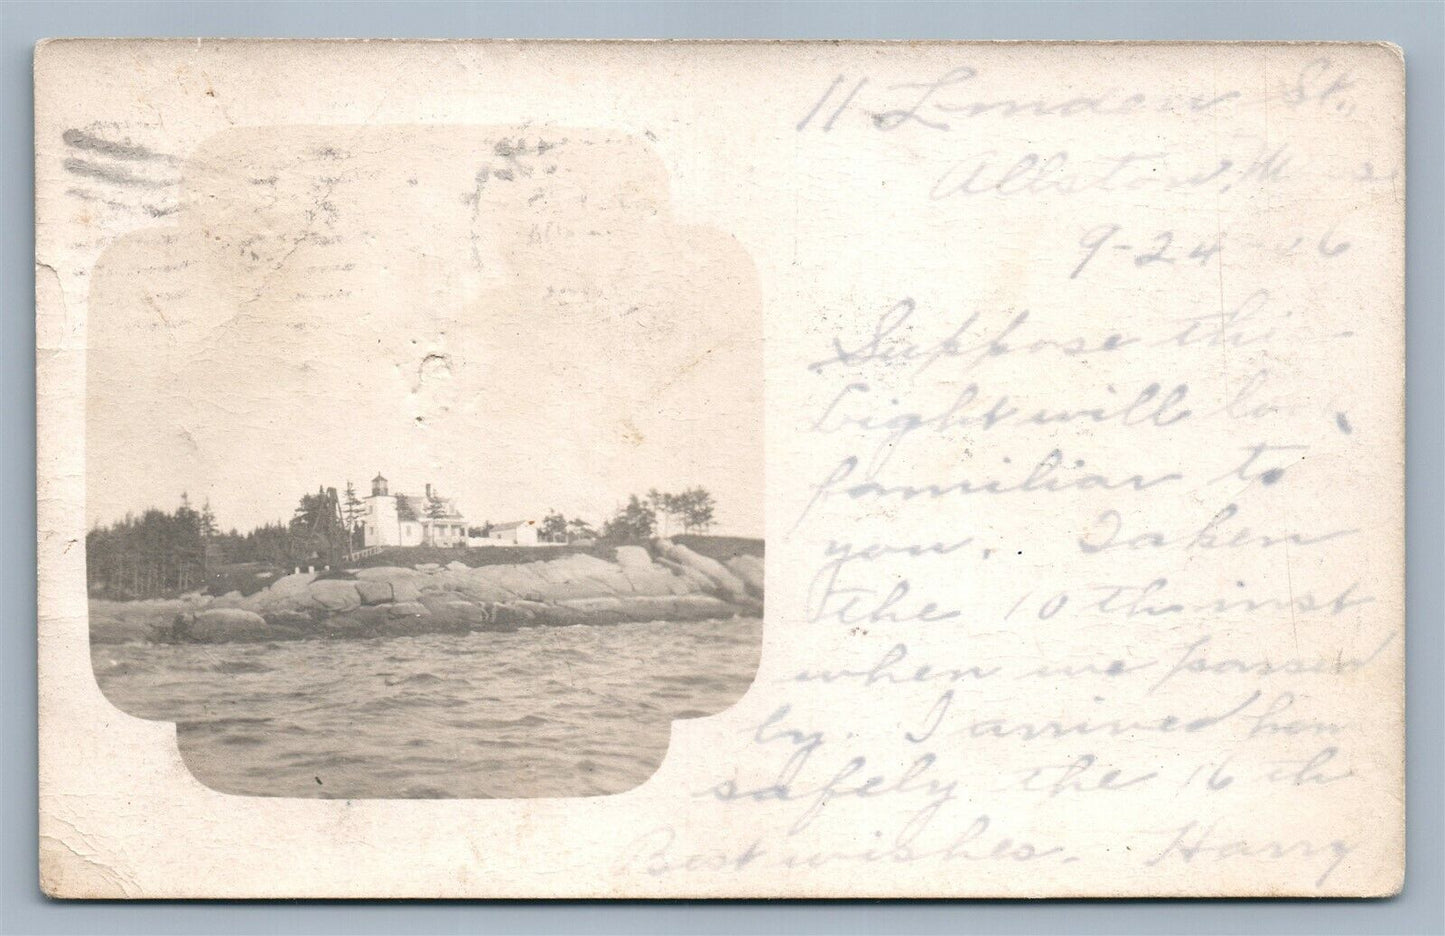 11 London St.,
Allston, Mass
9-24-06
Suppose this
Light will look
familiar to
you. Taken
the 10th inst
when we passed
by. I arrived here
safely the 16th
Best wishes. Harry